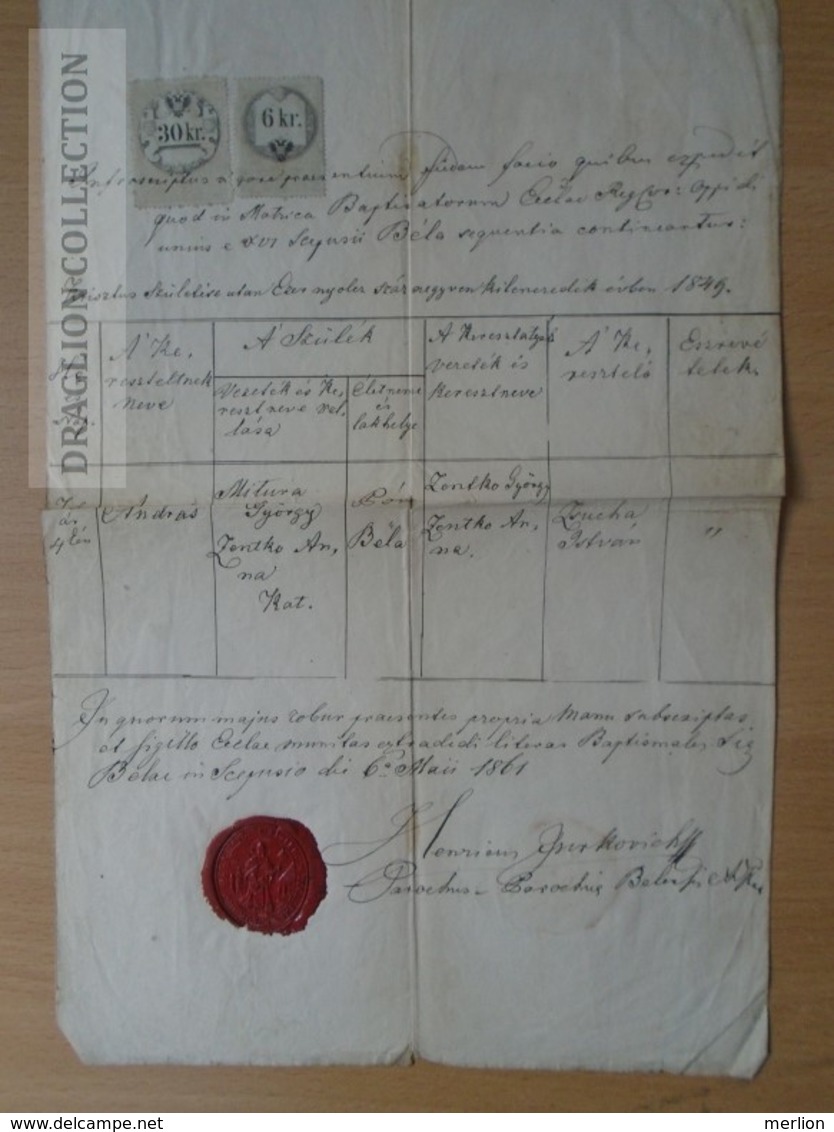 DRAGLION-COLLECTION
30 kr.
6 kr.
Infrascriptus vigore praesentium fidem facio quibus expedit
quod in Matrica Baptisatorum Ecclae Oppidi
unius e XVI Scepusii Béla sequentia contineantur:
Krisztus Születése után Ezer nyolcz száz negyven kilenczedik évben 1849.
A' Ke,
reszteltnek
Neve
A' Szülék
Vezeték és Ke,
resztneve val,
lása
Életneme
és
lakhelye
A Keresztatyák
vezeték és
Keresztneve
A' Ke,
resztelő
Eszrevé
telek.
4 én
András
Mitura
György
Zentko An,
na
Kat.
Béla
Zentko György
Zentko An,
na.
Zucha
István
"
In quorum majus robur praesentes propria Manu subscriptas
et sigillo Eclae munitas extradedi literas Baptismales Sig
Belae in Scepusio die 6a Maii 1861
Henricus Jurkovich
Parochus
merlion